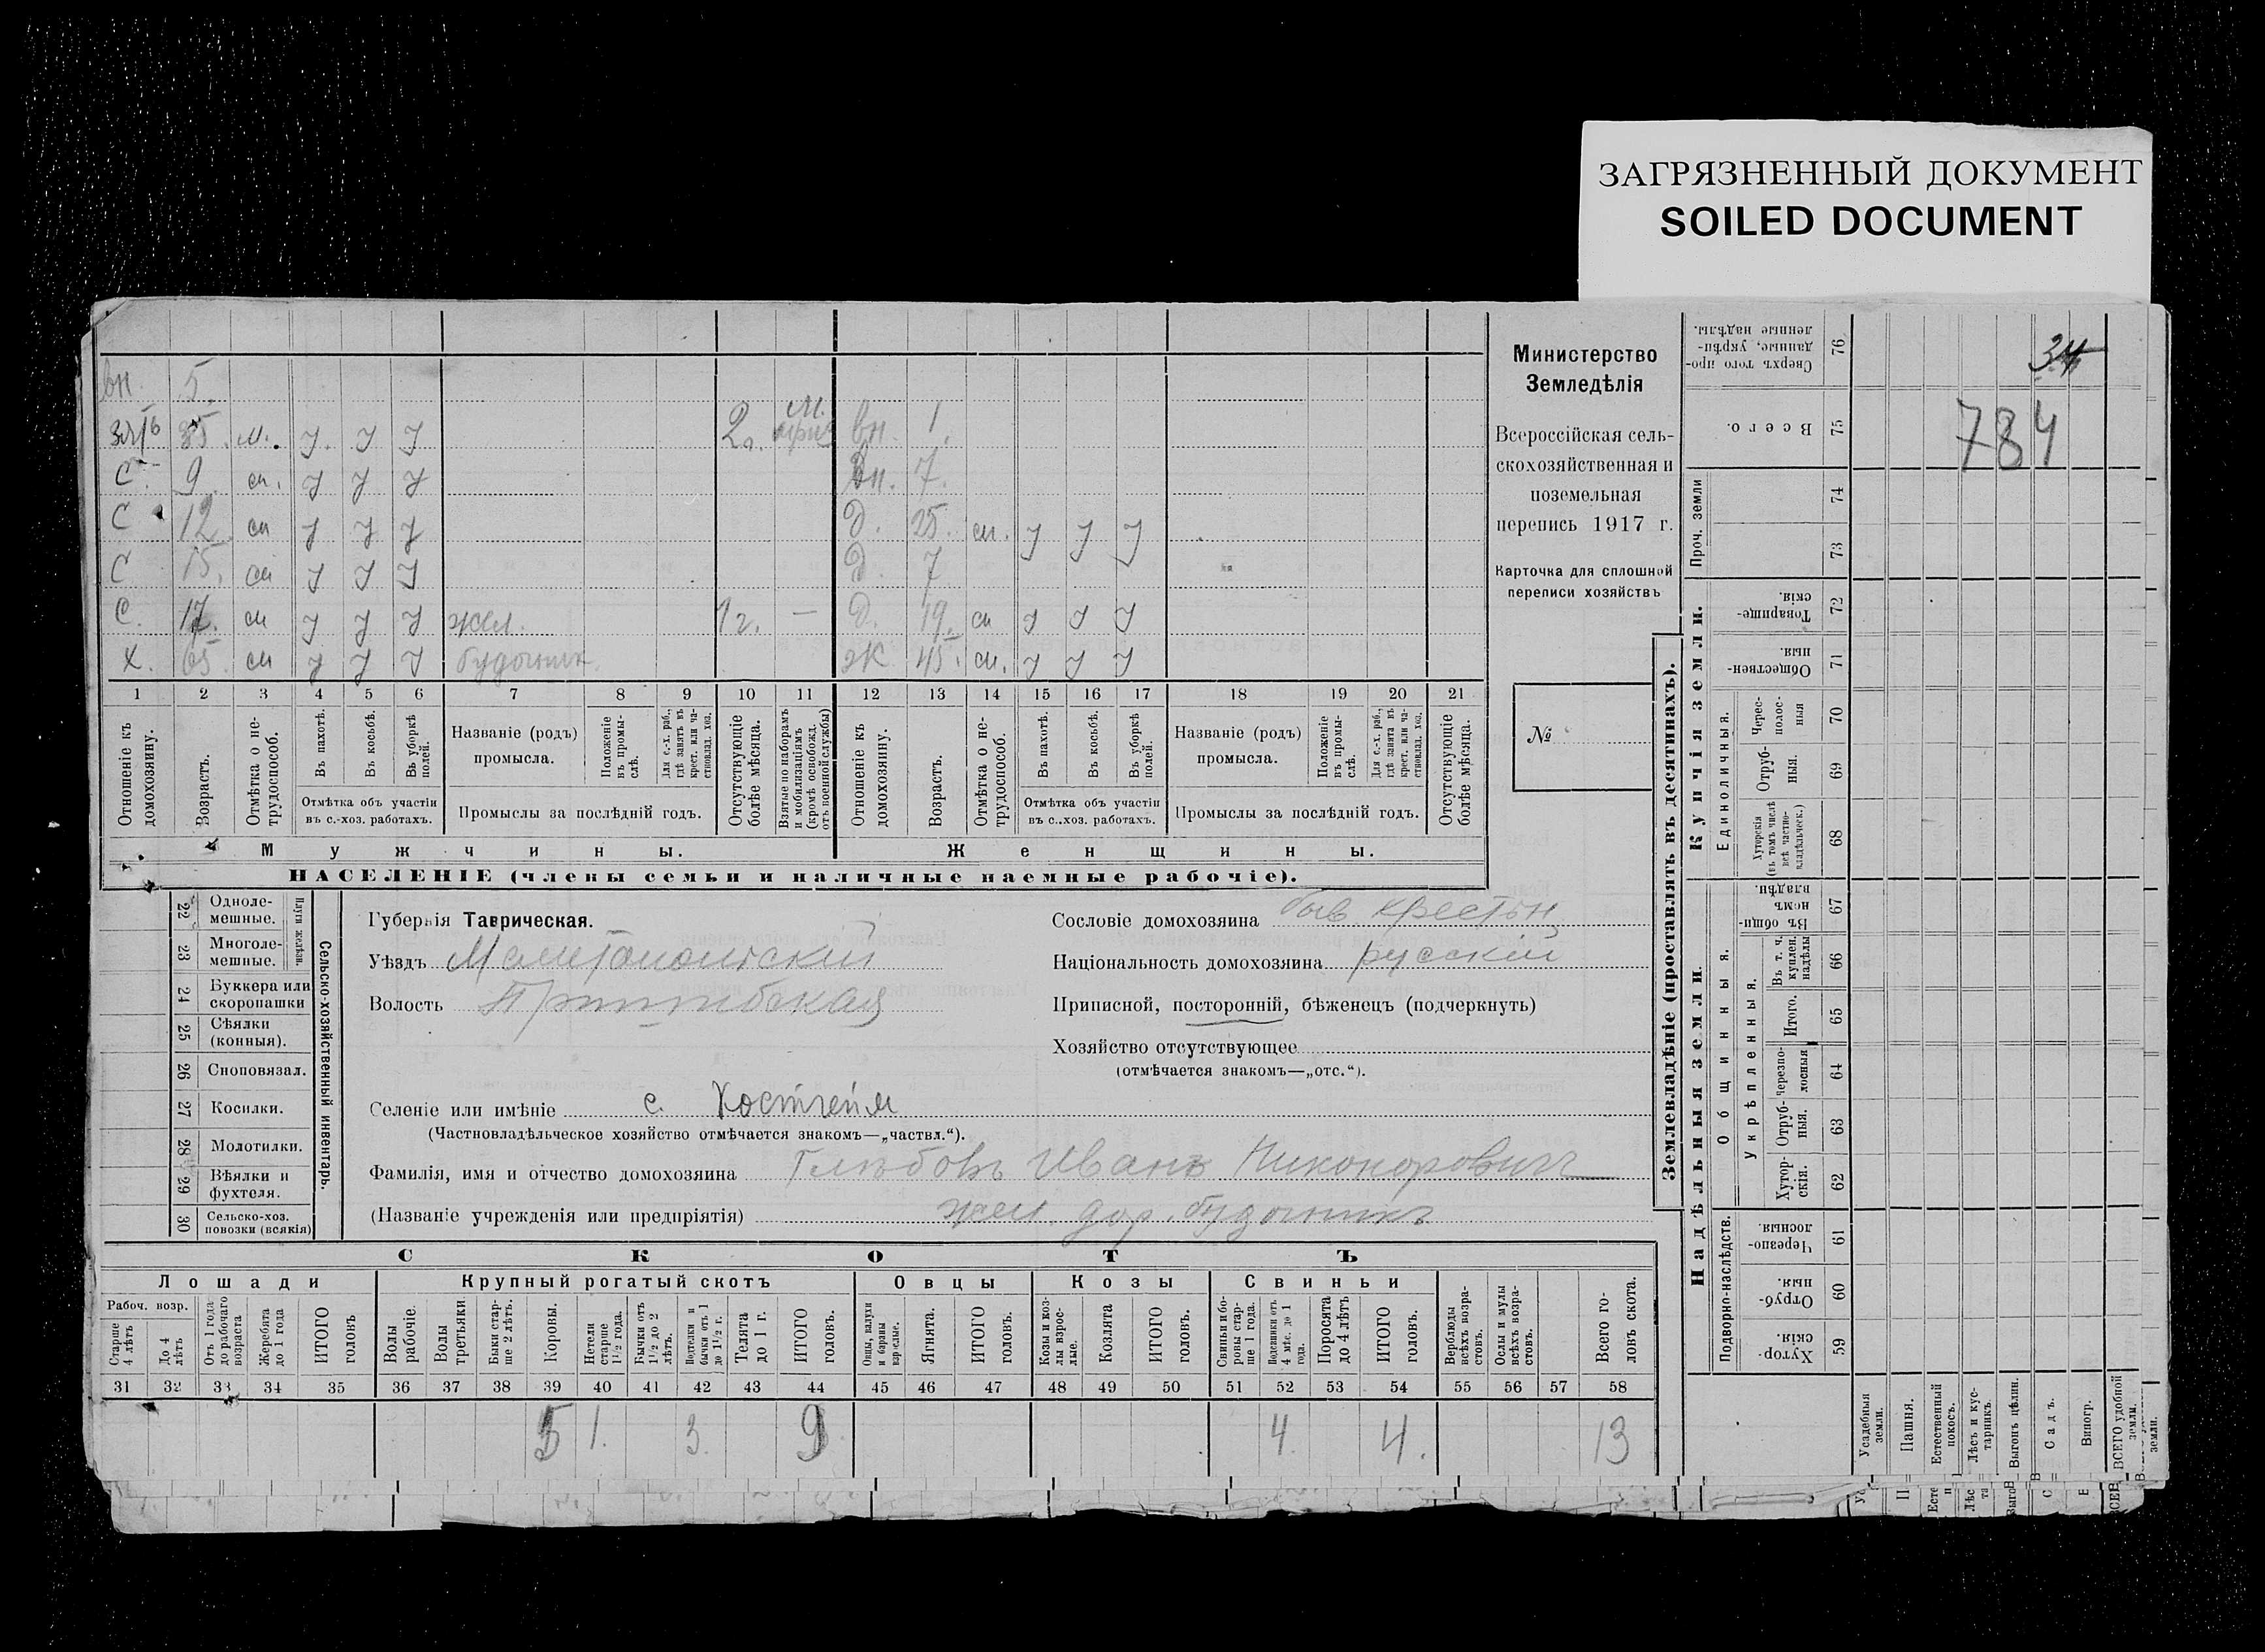 ЗАГРЯЗНЕННЫЙ ДОКУМЕНТ
SOILED DOCUMENT
вн. 5.
зять 35. м. у. у у 2 г. м. вн. 1.
С. 9. см. у у у вн. 7.
С 12 см у у у д. 25. см. у у у
С 15. см у у у д. 7
С. 17. см у у у жел. 1 г. — д. 19. см у у у
х. 65 см у у у будочник. ж 45. см. у у у
1 2 3 4 5 6 7 8 9 10 11 12 13 14 15 16 17 18 19 20 21
Отношеніе къ домохозяину.
Возрастъ.
Отмѣтка о нетрудоспособ.
Въ пахотѣ.
Въ косьбѣ.
Въ уборкѣ полей.
Отмѣтка объ участіи
въ с.-хоз. работахъ.
Названіе (родъ)
промысла.
Положеніе въ промыслѣ.
Для с.-х. раб., гдѣ занятъ въ крест. или частновлад. хоз.
Промыслы за послѣдній годъ.
Отсутствующіе болѣе мѣсяца.
Взятые по наборамъ и мобилизаціямъ (кромѣ освобожд. отъ военной службы)
Отношеніе къ домохозяину.
Возрастъ.
Отмѣтка о нетрудоспособ.
Въ пахотѣ.
Въ косьбѣ.
Въ уборкѣ полей.
Отмѣтка объ участіи
въ с..хоз. работахъ.
Названіе (родъ)
промысла.
Положеніе въ промыслѣ.
Для с.-х. раб., гдѣ занята въ крест. или частновлад. хоз.
Промыслы за послѣдній годъ.
Отсутствующіе болѣе мѣсяца.
Мужчины.
Женщины.
НАСЕЛЕНІЕ (члены семьи и наличные наемные рабочіе).
Министерство
Земледѣлія
Всероссійская сель-
скохозяйственная и
поземельная
перепись 1917 г.
Карточка для сплошной
переписи хозяйствъ
№
Сельско-хозяйственный инвентарь.
Плуги желѣзн.
22 Одноле-
мешные.
23 Многоле-
мешные.
24 Буккера или
скоропашки
25 Сѣялки
(конныя).
26 Сноповязал.
27 Косилки.
28 Молотилки.
29 Вѣялки и
фухтеля.
30 Сельско-хоз.
повозки (всякія)
Губернія Таврическая.
Уѣздъ Мелитопольскій
Волость Пришибская
Селеніе или имѣніе с. Костгейм
(Частновладѣльческое хозяйство отмѣчается знакомъ—„частвл.“).
Фамилія, имя и отчество домохозяина Глѣбовъ Иванъ Никонорович
(Названіе учрежденія или предпріятія) жел. дор. будочникъ
Сословіе домохозяина быв крестьян
Національность домохозяина русскій
Приписной, посторонній, бѣженецъ (подчеркнуть)
Хозяйство отсутствующее
(отмѣчается знакомъ—„отс.“).
СКОТЪ
Лошади
Крупный рогатый скотъ
Овцы
Козы
Свиньи
Рабоч. возр.
Старше 4 лѣтъ
До 4 лѣтъ
Отъ 1 года до рабочаго возраста
Жеребята до 1 года
ИТОГО головъ
Волы рабочіе.
Волы третьяки.
Быки старше 2 лѣтъ.
Коровы.
Нетели старше 1 1/2 года.
Бычки отъ 1 1/2 до 2 лѣтъ.
Подтелки и бычки отъ 1 до 1 1/2 г.
Телята до 1 г.
ИТОГО головъ.
Овцы, валухи и бараны взрослые.
Ягнята.
ИТОГО головъ.
Козы и козлы взрослые.
Козлята
ИТОГО головъ.
Свиньи и боровы старше 1 года.
Подсвинки отъ 4 мѣс. до 1 года.
Поросята до 4 лѣтъ
ИТОГО головъ.
Верблюды всѣхъ возрастовъ.
Ослы и мулы всѣхъ возрастовъ.
Всего головъ скота.
31 32 33 34 35 36 37 38 39 40 41 42 43 44 45 46 47 48 49 50 51 52 53 54 55 56 57 58
5 1. 3. 9 4. 4. 13
Землевладѣніе (проставлять въ десятинахъ).
Купчія земли.
Надѣльныя земли.
Проч. земли
Единоличныя.
Общинныя.
Укрѣпленныя.
Подворно-наслѣдств.
76 Сверхъ того проданные, укрѣпленные надѣлы.
75 Всего.
74
73
72 Товарищескія.
71 Общественныя.
70 Чересполосныя
69 Отрубныя.
68 Хуторскія (въ томъ числѣ всѣ частновладѣльческ.)
67 Въ общинномъ владѣн.
66 Въ т. ч. куплен. надѣлы
65 Итого.
64 Черезполосныя
63 Отрубныя.
62 Хуторскія.
61 Черезполосныя
60 Отрубныя.
59 Хуторскія.
34
784
Усадебныя земли.
Пашня.
Естественный покосъ.
Лѣсъ и кустарникъ.
Выгонъ цѣлин.
Садъ.
Виногр.
ВСЕГО удобной земли.